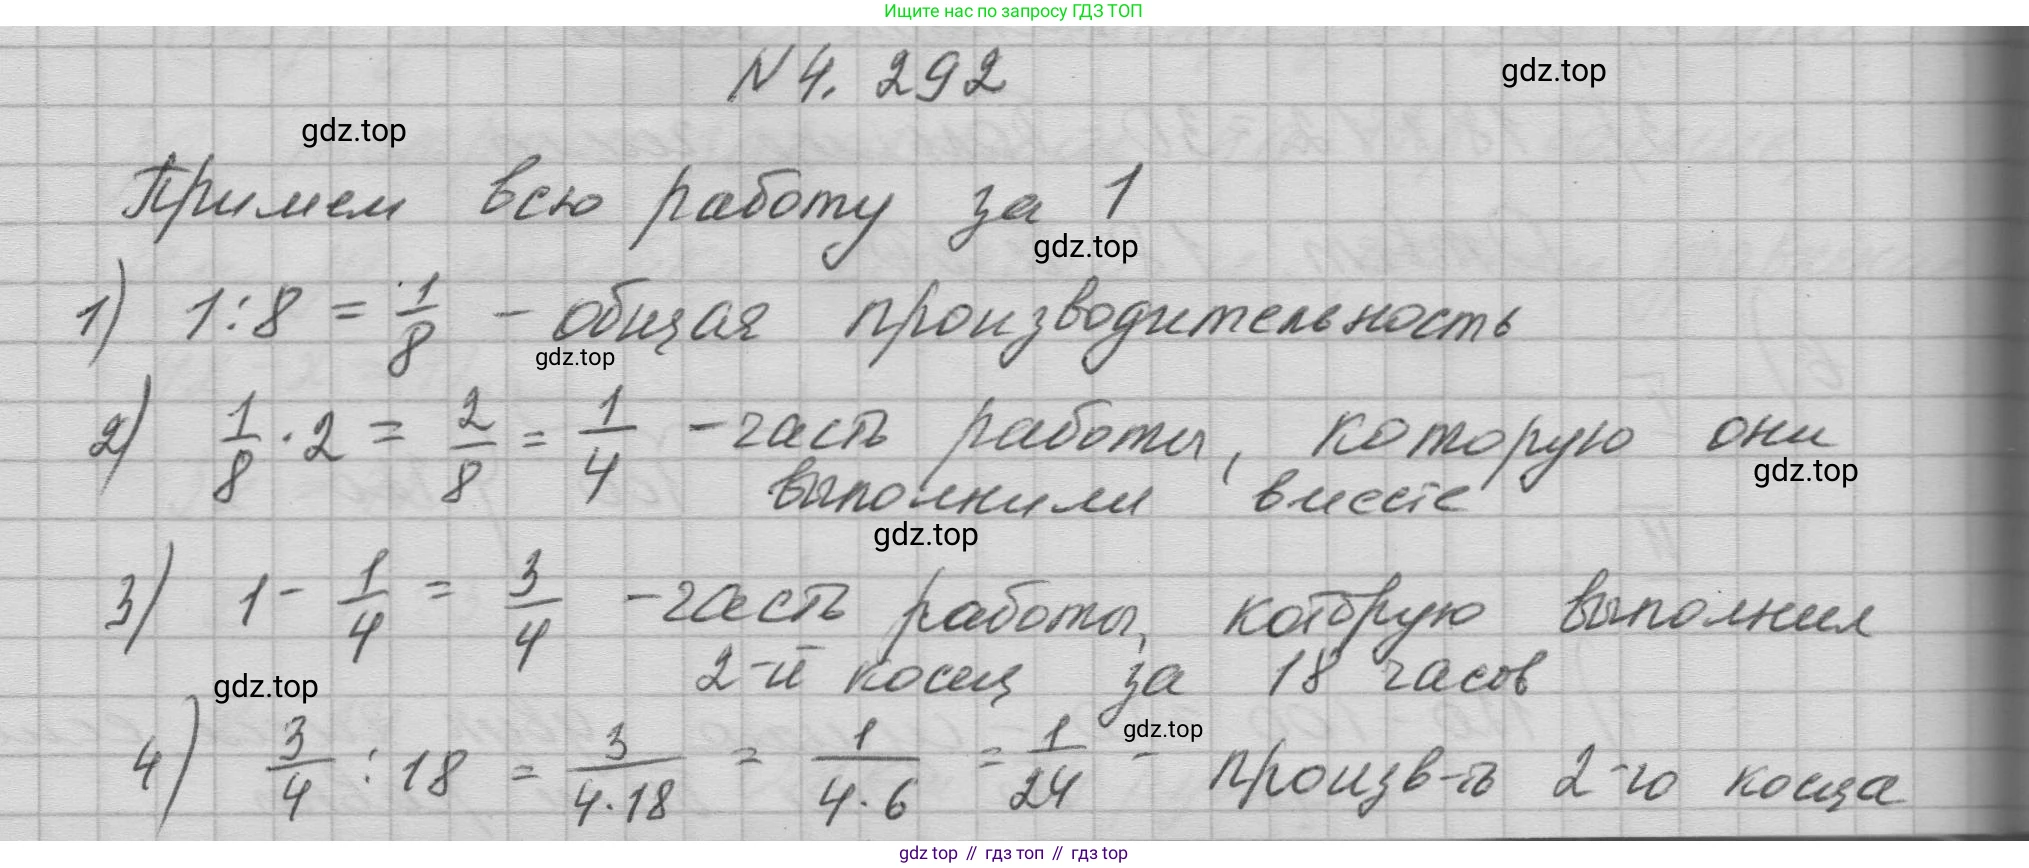 Ищите нас по запросу ГДЗ ТОП
N 4. 292
gdz.top
gdz.top
Примем всю работу за 1
gdz.top
1) 1:8 = 1/8 - общая производительность
gdz.top
2) 1/8 · 2 = 2/8 = 1/4 - часть работы, которую они
gdz.top
выполнили вместе
gdz.top
3) 1 - 1/4 = 3/4 - часть работы, которую выполнил
2-й косец за 18 часов
gdz.top
gdz.top
4) 3/4 : 18 = 3/(4·18) = 1/(4·6) = 1/24 - произв-ть 2-го косца
gdz top // гдз топ // гдз top